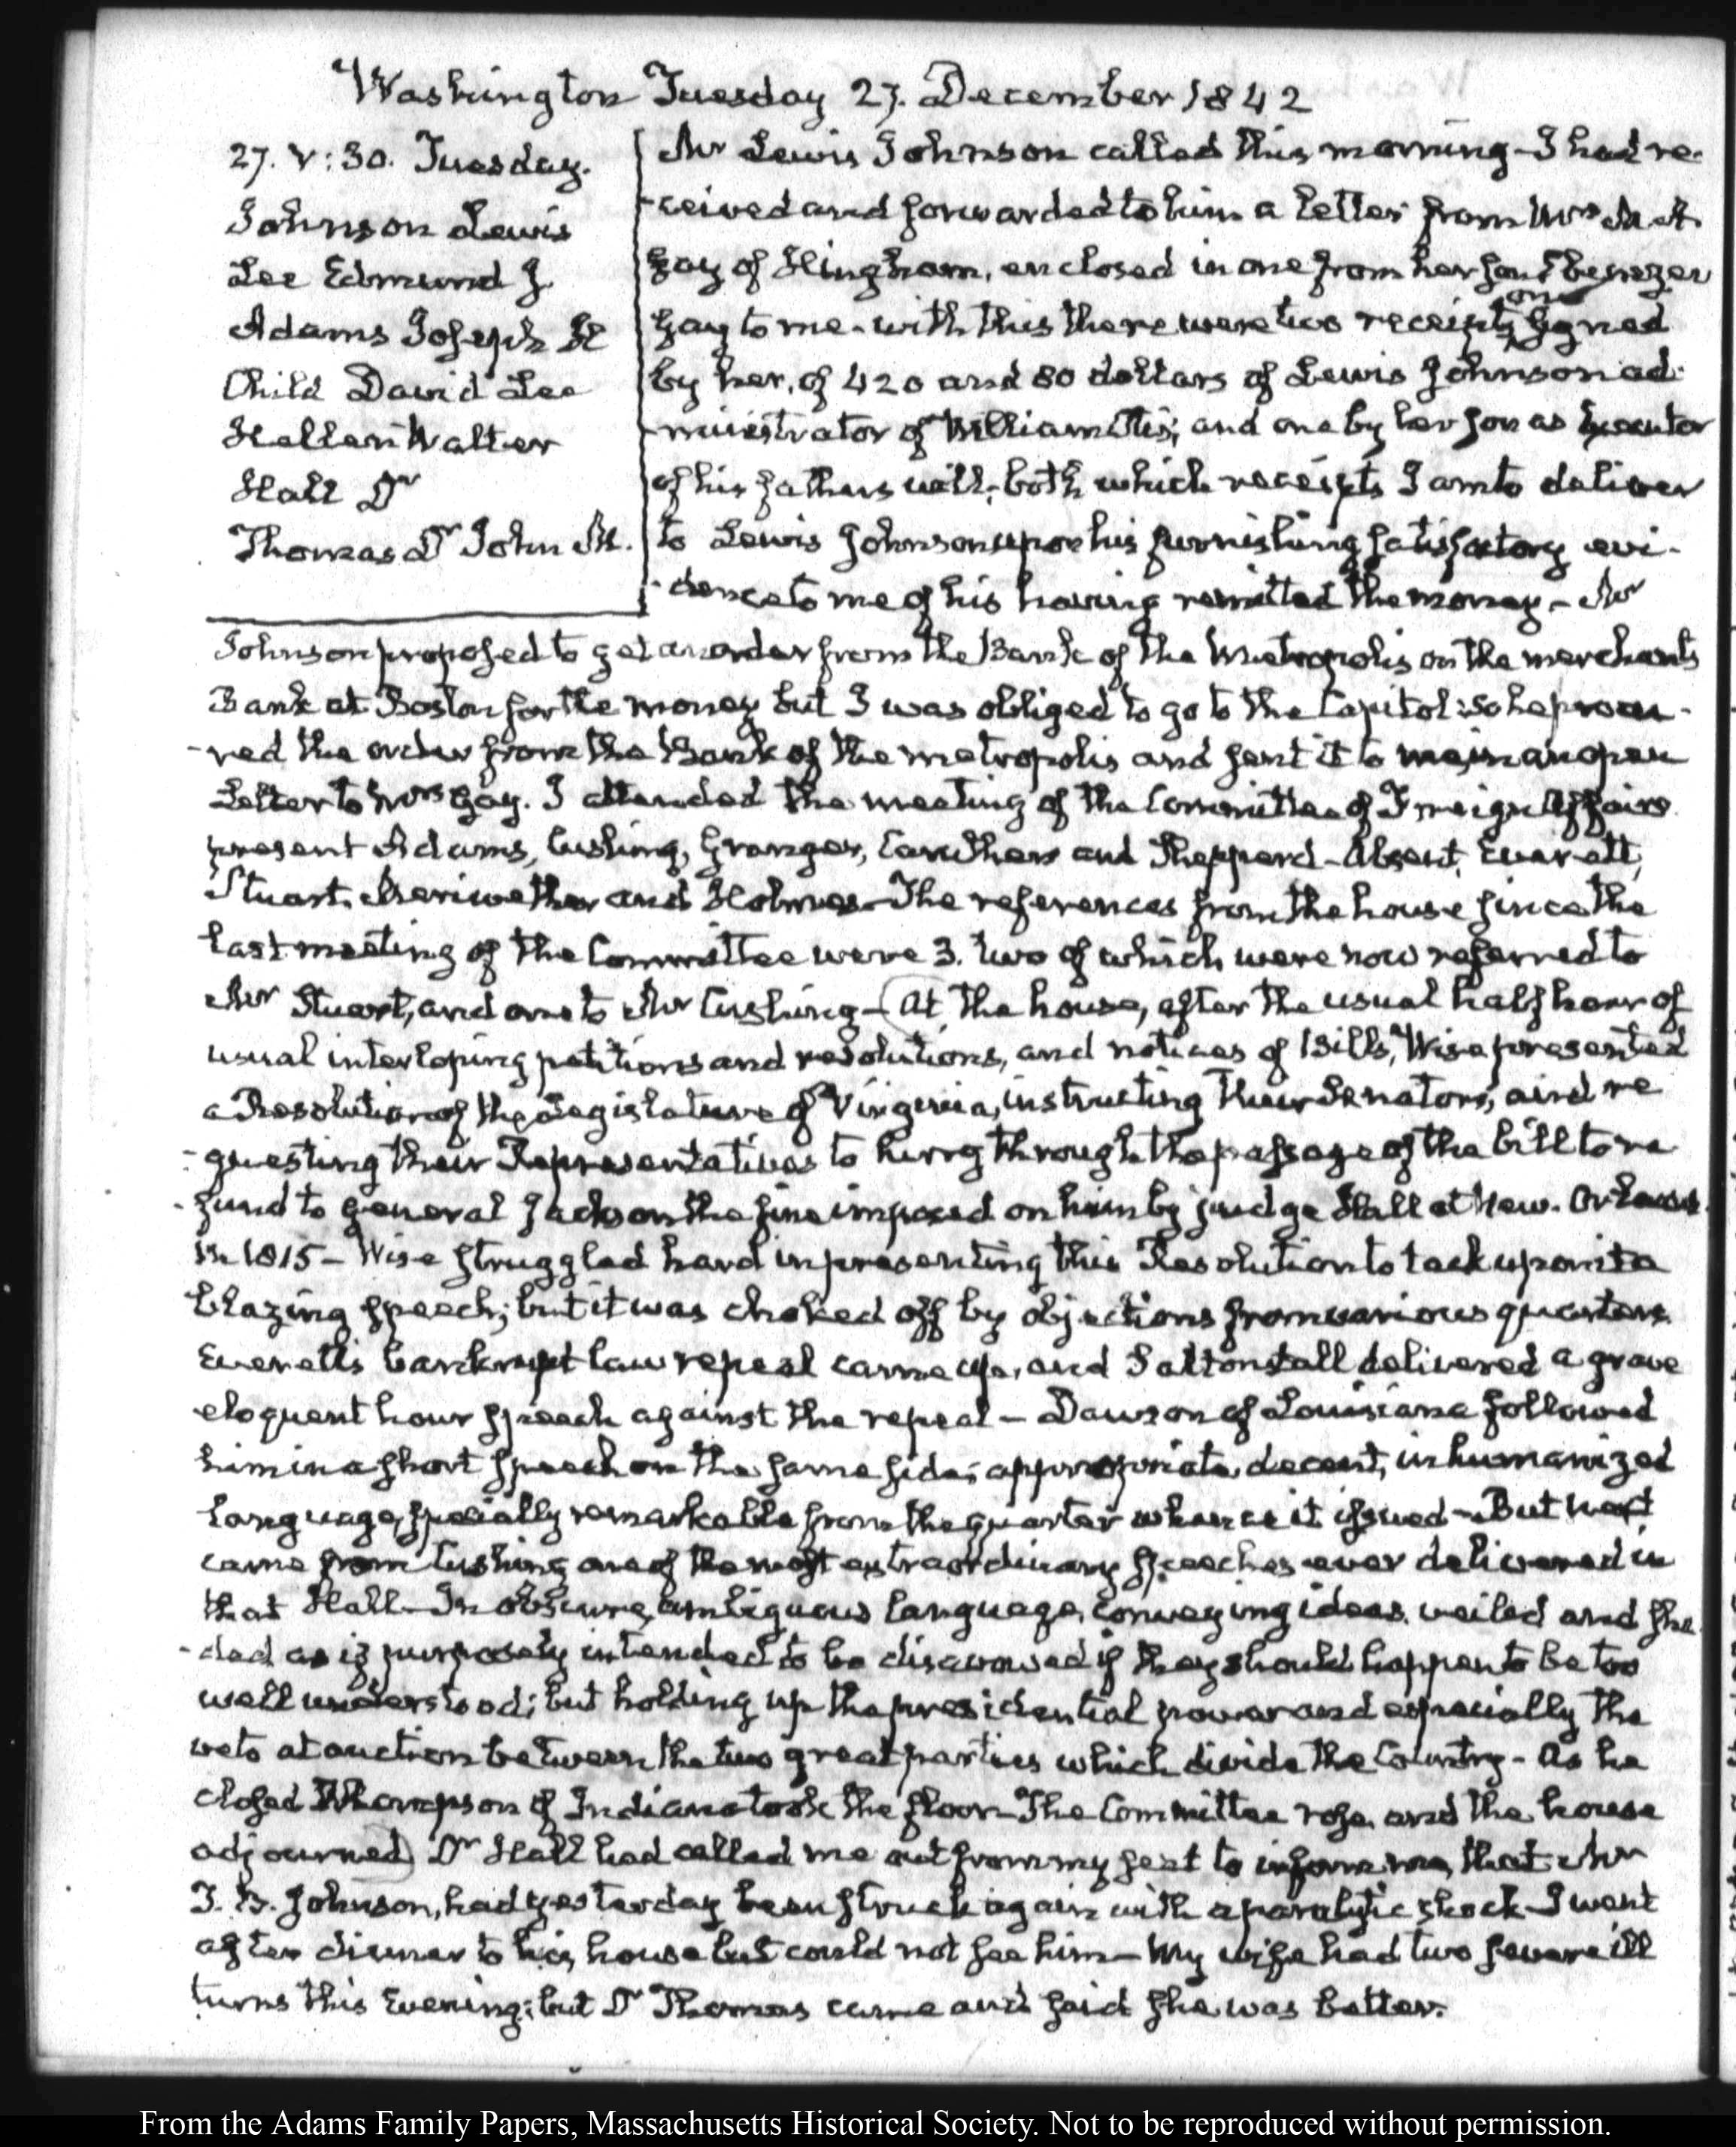 Washington Tuesday 27. December 1842
27. V:30. Tuesday.
Johnson Lewis
Lee Edmund J
Adams Joseph H
Child David Lee
Hellen Walter
Hall Dr
Thomas Dr John M.
Mr Lewis Johnson called this morning – I had re-
-ceived and forwarded to him a letter from Mrs M. A.
Gay of Hingham, enclosed in one from her son Ebenezer
Gay to me – with this there were two receipts, one signed
by her, of 420 and 80 dollars of Lewis Johnson ad-
-ministrator of William Otis; and one by her son as Executor
of his father's will; both which receipts I am to deliver
to Lewis Johnson upon his furnishing satisfactory evi-
-dence to me of his having remitted the money – Mr
Johnson proposed to get an order from the Bank of the Metropolis on the Merchants
Bank at Boston for the money but I was obliged to go to the Capitol: so he procu-
-red the order from the Bank of the Metropolis and sent it to me, in an open
Letter to Mrs Gay. I attended the meeting of the Committee of Foreign Affairs
present Adams, Cushing, Granger, Caruthers and Shepperd – Absent, Everett,
Stuart, Meriwether and Holmes – The references from the house since the
last meeting of the Committee were 3. two of which were now referred to
Mr Stuart, and one to Mr Cushing – (At the house, after the usual half hour of
usual interloping petitions and resolutions, and notices of Bills, Wise presented
a Resolution of the Legislature of Virginia, instructing their Senators, and re
-questing their Representatives to hurry through the passage of the bill to re
-fund to General Jackson the fine imposed on him by judge Hall at New-Orleans
in 1815 – Wise struggled hard in presenting this Resolution to tack upon it a
blazing speech; but it was choked off by objections from various quarters.
Everett's bankrupt law repeal came up, and Saltonstall delivered a grave
eloquent hour speech against the repeal – Dawson of Louisiana followed
him in a short speech on the same side; appropriate, decent, in humanized
language, specially remarkable from the quarter whence it issued – But next
came from Cushing one of the most extraordinary speeches ever delivered in
that Hall – In obscure, ambiguous language, conveying ideas, veiled and sha
-ded as if purposely intended to be disavowed if they should happen to be too
well understood; but holding up the presidential power and especially the
veto at auction between the two great parties which divide the Country – As he
closed Thompson of Indiana took the floor – The Committee rose, and the house
adjourned) Dr Hall had called me out from my seat to inform me, that Mr
J. B. Johnson, had yesterday been struck again with a paralytic shock – I went
after dinner to his house but could not see him – My wife had two severe ill
turns this Evening; but Dr Thomas came and said she was better.
From the Adams Family Papers, Massachusetts Historical Society. Not to be reproduced without permission.